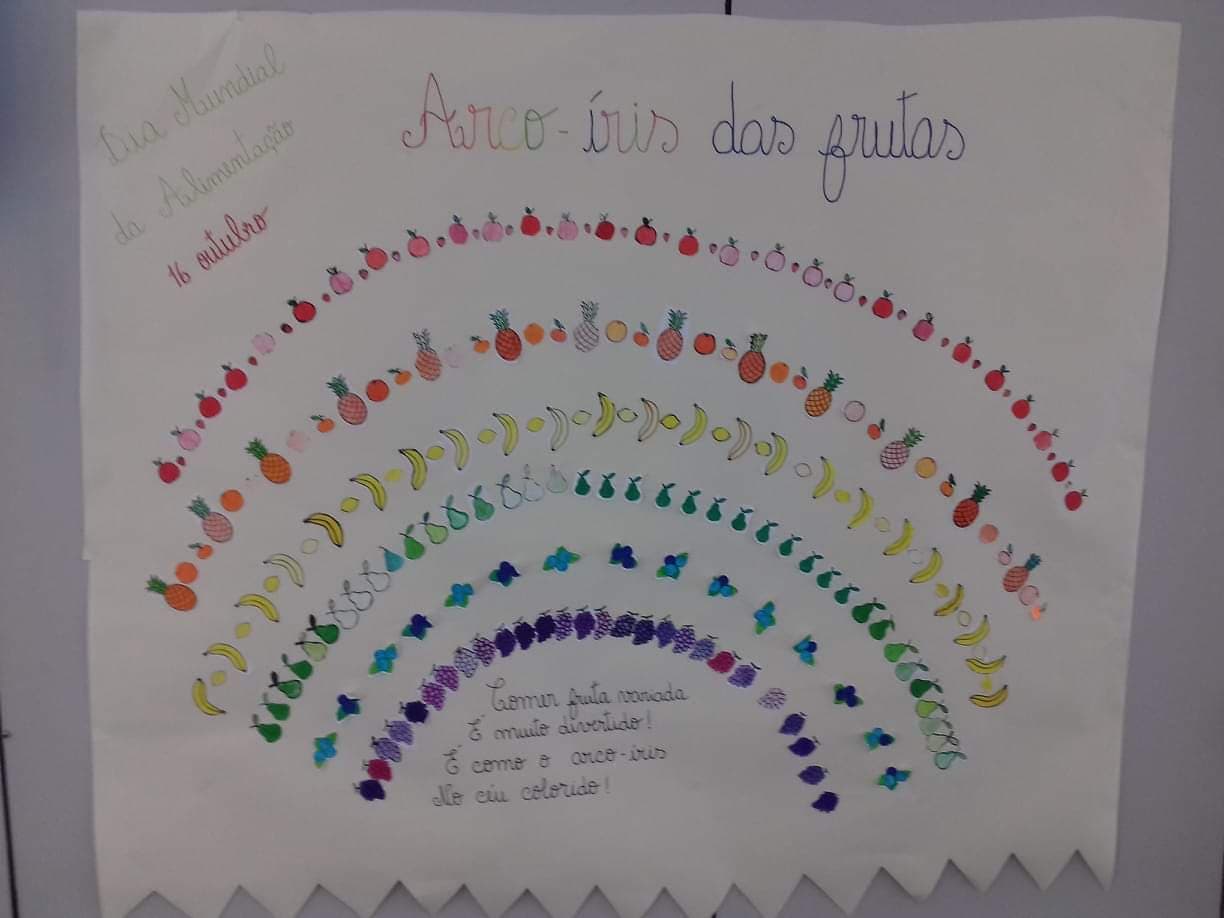 Dia Mundial
da Alimentação
16 outubro
Arco-íris das frutas
Comer fruta variada
É muito divertido!
É como o arco-íris
No céu colorido!